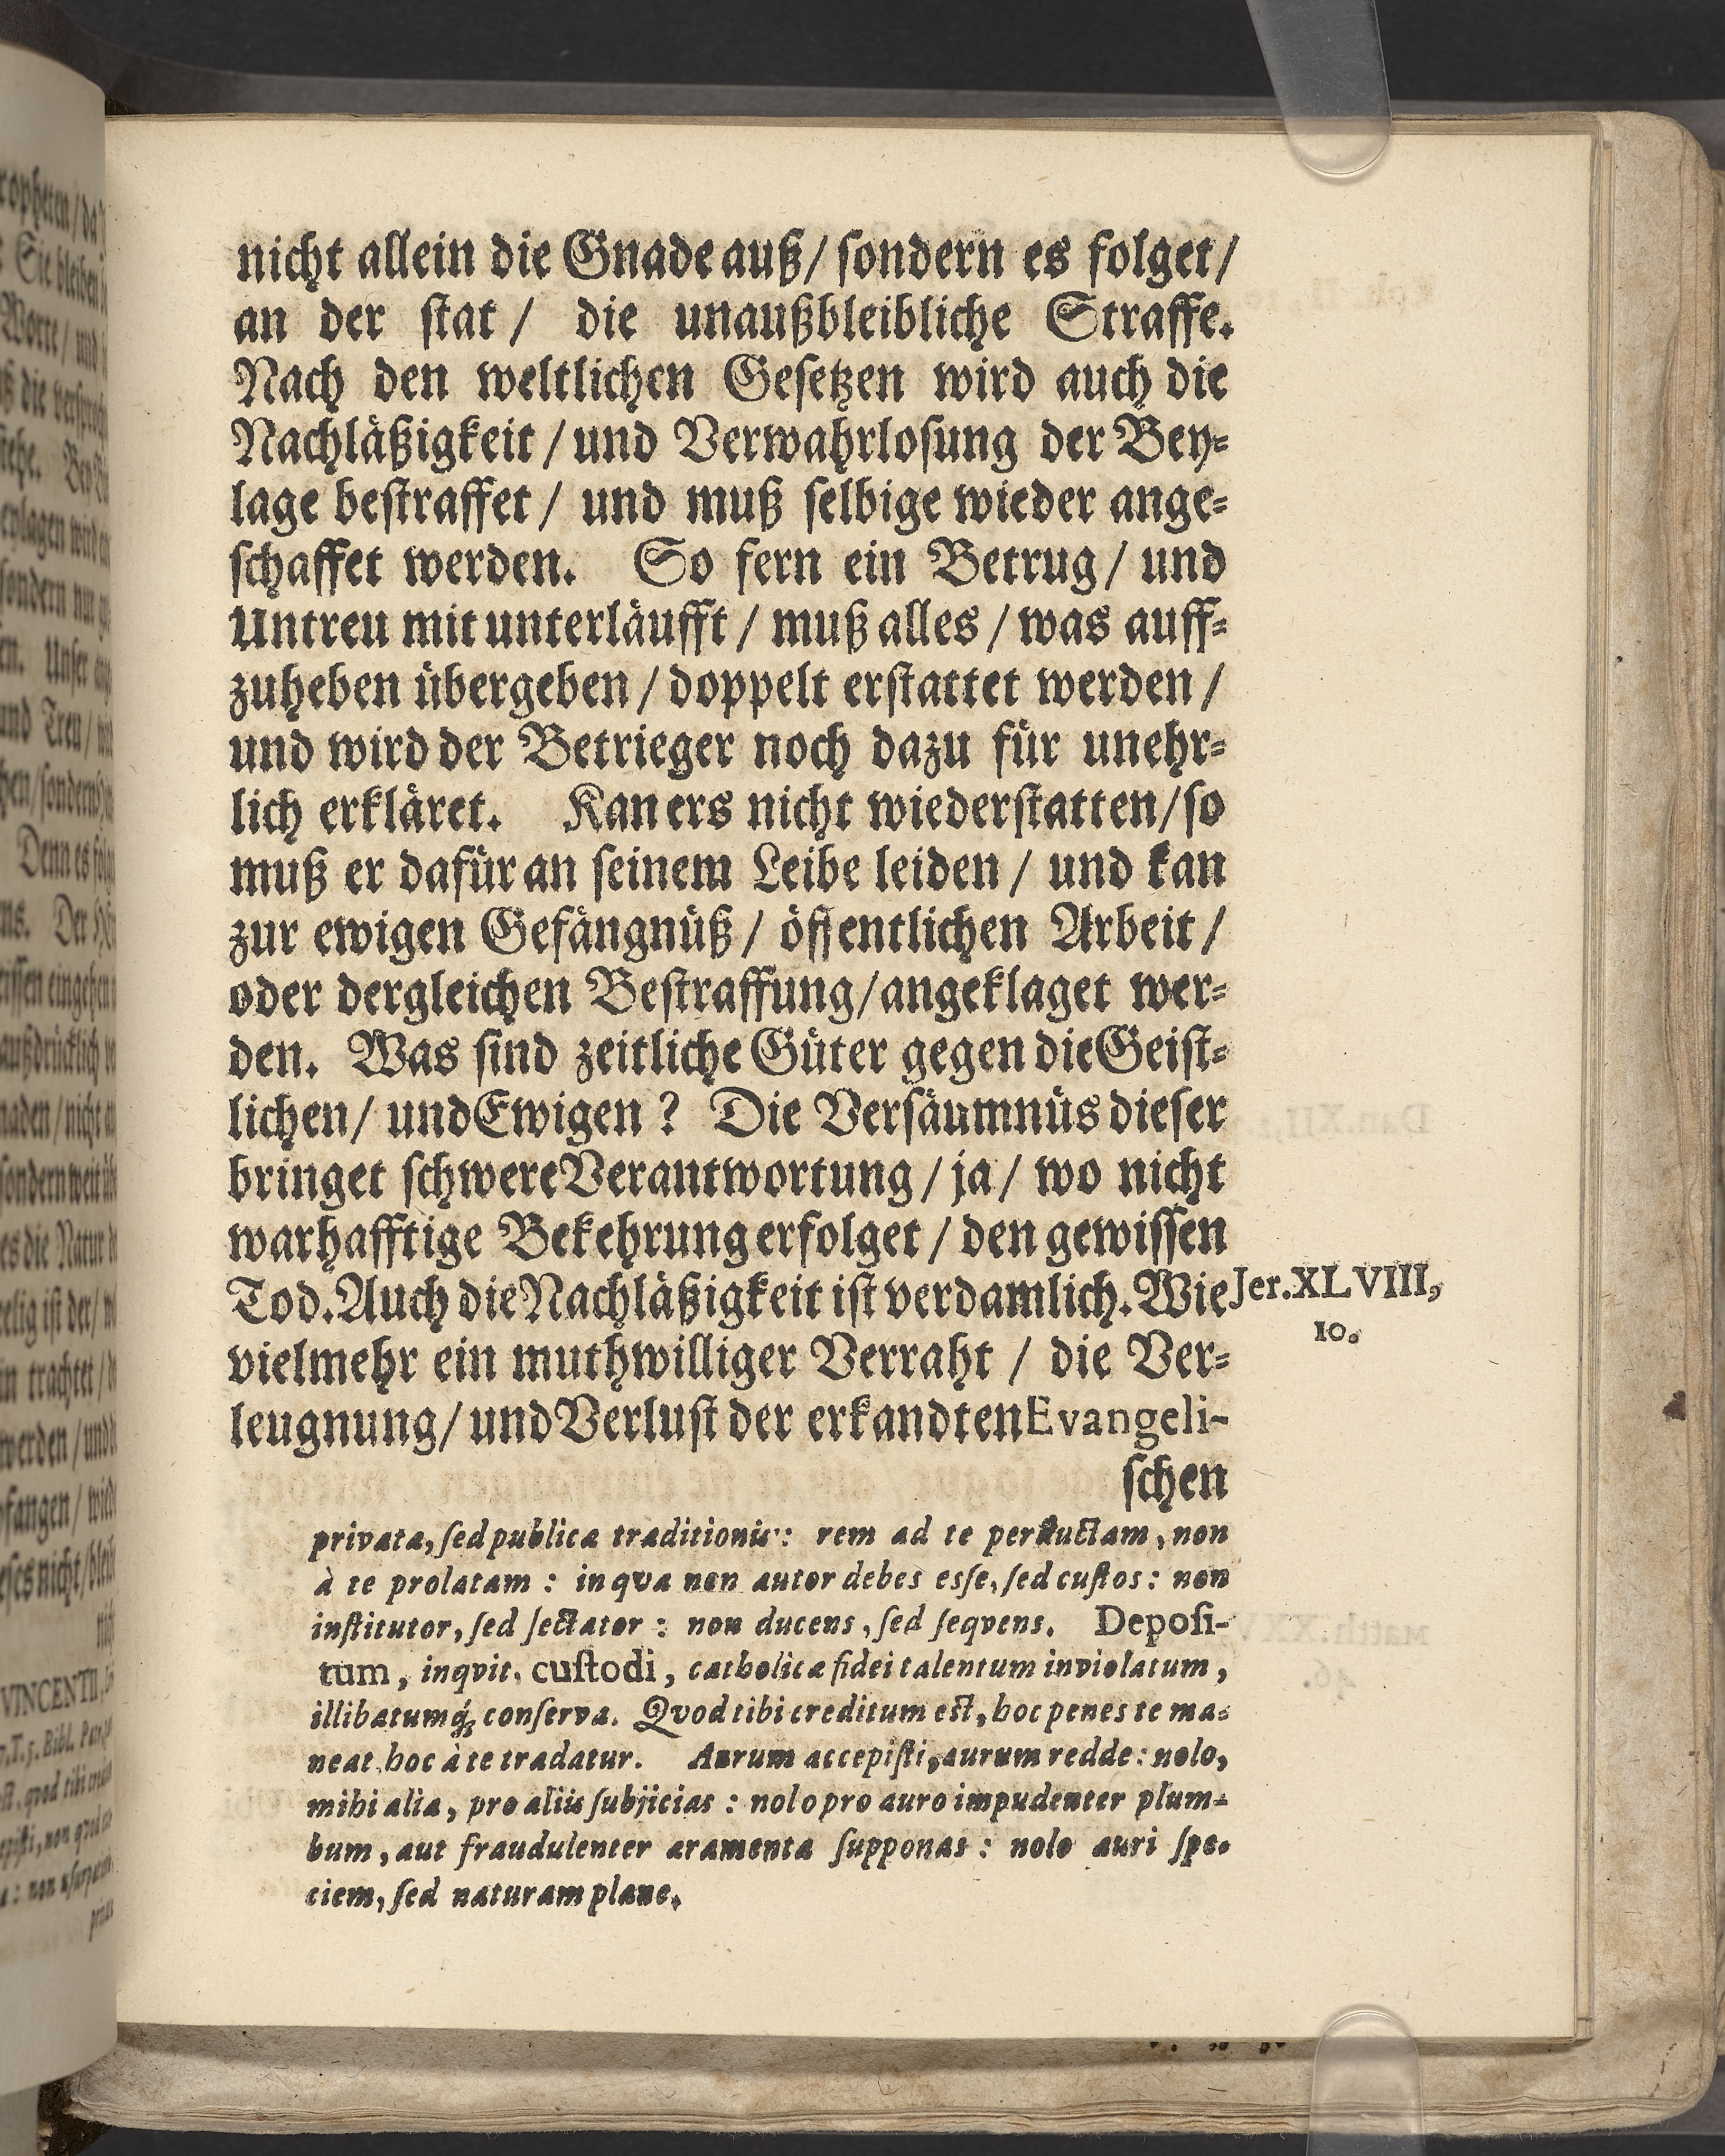 nicht allein die Gnade auß/ sondern es folget/
an der stat / die unaußbleibliche Straffe.
Nach den weltlichen Gesetzen wird auch die
Nachläßigkeit / und Verwahrlosung der Bey-
lage bestraffet / und muß selbige wieder ange-
schaffet werden. So fern ein Betrug / und
Untreu mit unterläufft / muß alles / was auff-
zuheben übergeben / doppelt erstattet werden /
und wird der Betrieger noch dazu für unehr-
lich erkläret. Kan ers nicht wiederstatten/ so
muß er dafür an seinem Leibe leiden / und kan
zur ewigen Gefängnüß / öffentlichen Arbeit /
oder dergleichen Bestraffung/ angeklaget wer-
den. Was sind zeitliche Güter gegen die Geist-
lichen/ und Ewigen ? Die Versäumnüs dieser
bringet schwere Verantwortung / ja / wo nicht
warhafftige Bekehrung erfolget / den gewissen
Tod. Auch die Nachläßigkeit ist verdamlich. Wie
Jer. XLVIII,
10.
vielmehr ein muthwilliger Verraht / die Ver-
leugnung/ und Verlust der erkandten Evangeli-
schen
privatæ, sed publicæ traditionis: rem ad te perductam, non
à te prolatam : in qva non autor debes esse, sed custos: non
institutor, sed sectator : non ducens, sed seqvens. Deposi-
tum, inqvit, custodi, catholicæ fidei talentum inviolatum,
illibatumq́; conserva. Qvod tibi creditum est, hoc penes te ma-
neat, hoc à te tradatur. Aurum accepisti, aurum redde: nolo,
mihi alia, pro aliis subjicias : nolo pro auro impudenter plum-
bum, aut fraudulenter æramenta supponas : nolo auri spe-
ciem, sed naturam plane.